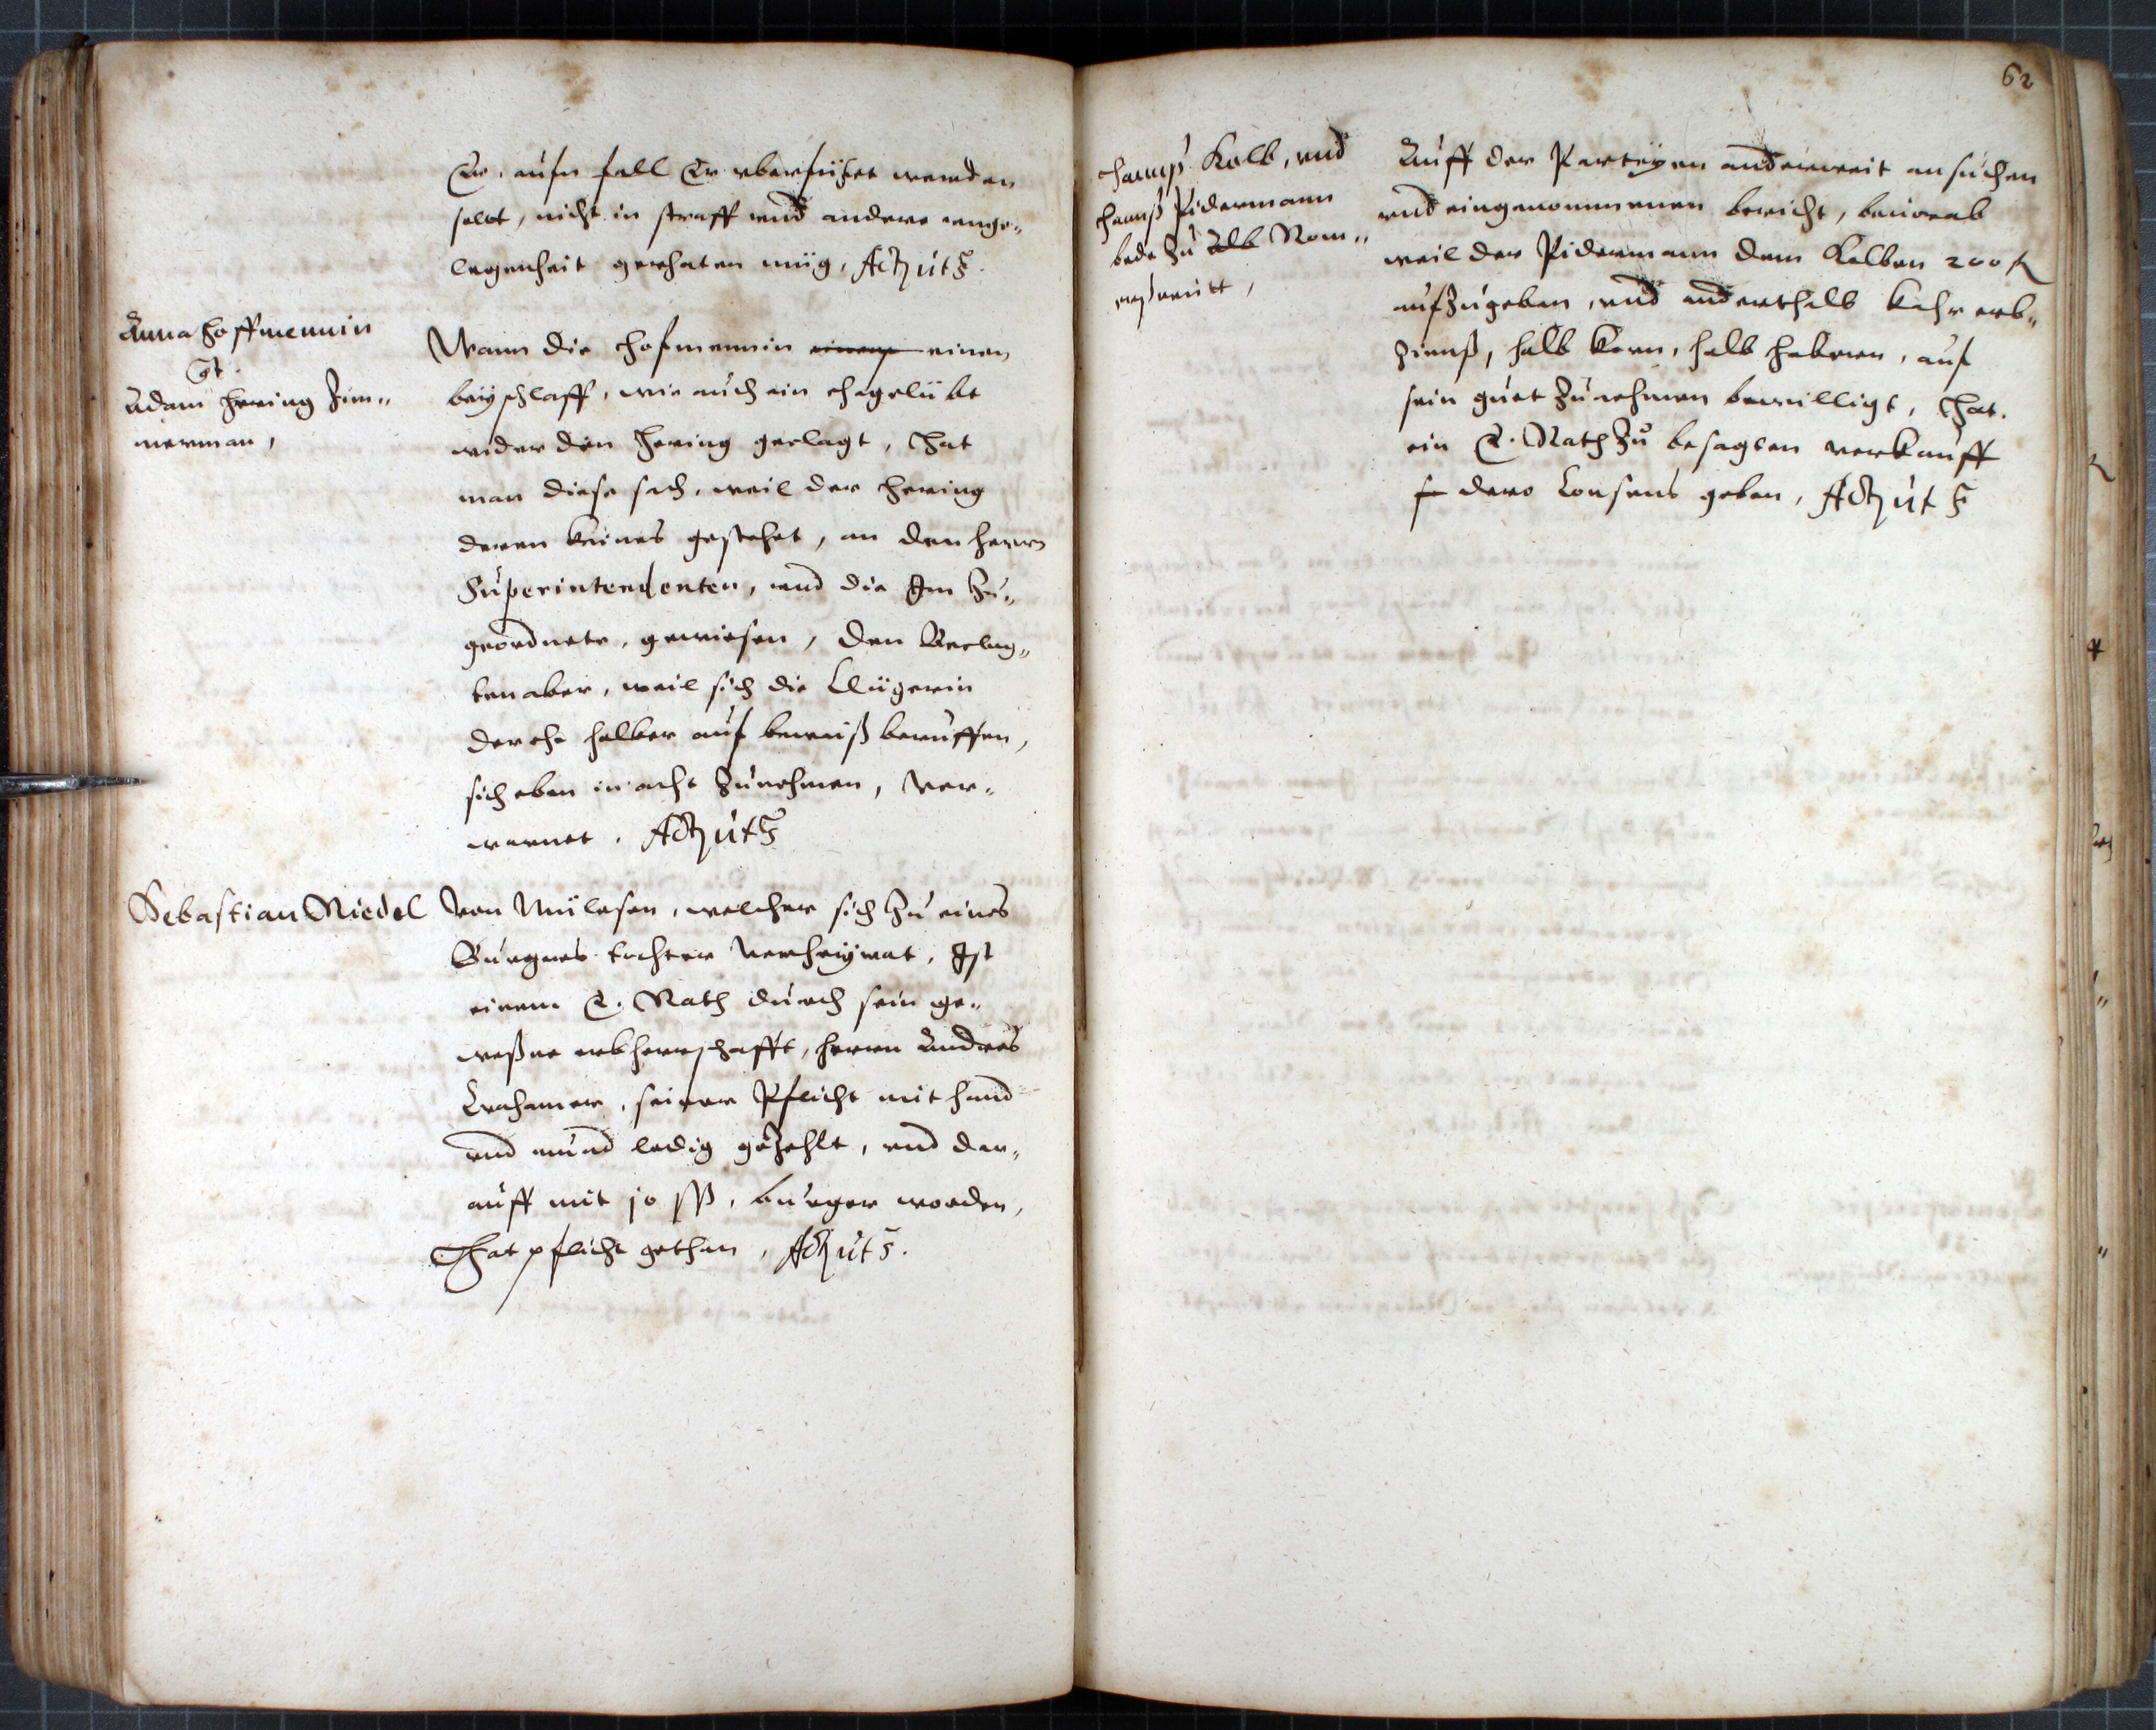 Er, aufn fall Er vberfüret werden
solt, nicht in straff vnd andere vnge-
legenheit gerhaten müg, Act. ut s.
Anna Hoffmennin
Ct.
Adam Hering Zim-
merman,
Wann die Hofmennin einen
beyschlaff, wie auch ein ehgelübt
wider den Hering geclagt, Hat
man diese sach, weil der Hering
deren keines gestehet, an den herrn
Superintendenten, vnd die Jm zu-
geordnete, gewiesen, den Beclag-
ten aber, weil sich die Clägerin
der ehe halber auf beweiß beruffen,
sich eben in acht zunehmen, ver-
warnet. Act. ut s.
Sebastian Riedel
von Mülesen, welcher sich zu eines
Burgers tochter verheyrat, Jst
einem E. Rath durch sein ge-
weßne erbherrschafft, herrn Andres
Crahamer, seiner Pflicht mit hand
vnd mund ledig gezehlt, vnd dar-
auff mit 10 ßß. burger worden,
Hat pflicht gethan, Act. ut s.
62
Hannß Kolb, vnd
Hannß Pidermann
bede zu Rom-
erßreutt,
Auff der Parteyen anderweit ansuchen
vnd eingenommenen bericht, beuorab
weil der Pidermann dem Kolben 200 fl
aufzugeben, vnd anderthalb kahr erb-
zinnß, halb korn, halb habern, auf
sein guet zunehmen bewilligt, Hat
ein E. Rath zu besagten verkauff
dero Consens geben, Act. ut s.